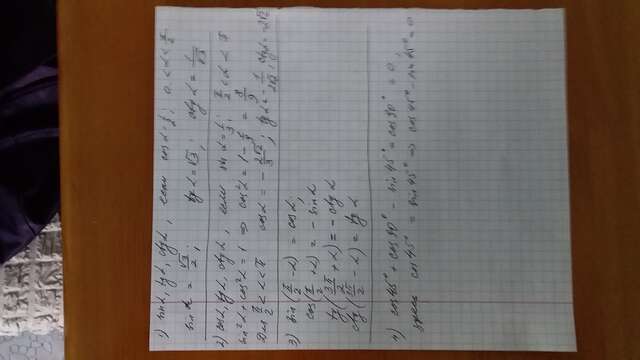 1) sin α, tg α, ctg α, если cos α = 1/2; 0 < α < π/2
sin α = √3/2; tg α = √3; ctg α = 1/√3
2) cos α, tg α, ctg α, если sin α = 1/3; π/2 < α < π
sin² α + cos² α = 1 ⇒ cos² α = 1 - 1/9 = 8/9
Для π/2 < α < π cos α = - 2√2/3; tg α = - 1/2√2; ctg α = -2√2
3) sin (π/2 - α) = cos α;
cos (π/2 + α) = - sin α
tg (3π/2 + α) = - ctg α
ctg (3π/2 - α) = tg α
4) cos 45° + cos 90° - sin 45° = cos 90° = 0;
cos 45° = sin 45° ⇒ cos 45° - sin 45° = 0